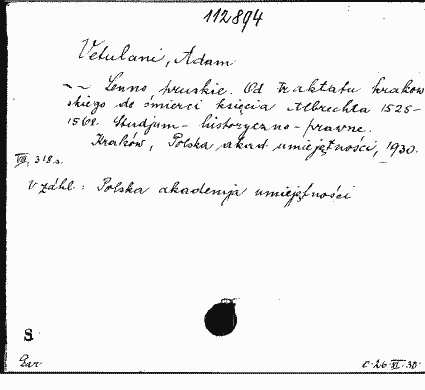 112894
Vetulani, Adam
~ ~ Lenno pruskie. Od traktatu krakow
skiego do śmierci księcia Albrechta 1525-
1568. Studjum - historyczno - prawne.
Kraków, Polska akad. umiejętności, 1930.
VIII, 318 s.
V záhl: Polska akademija umiejętności
S
C 26 VI. 30